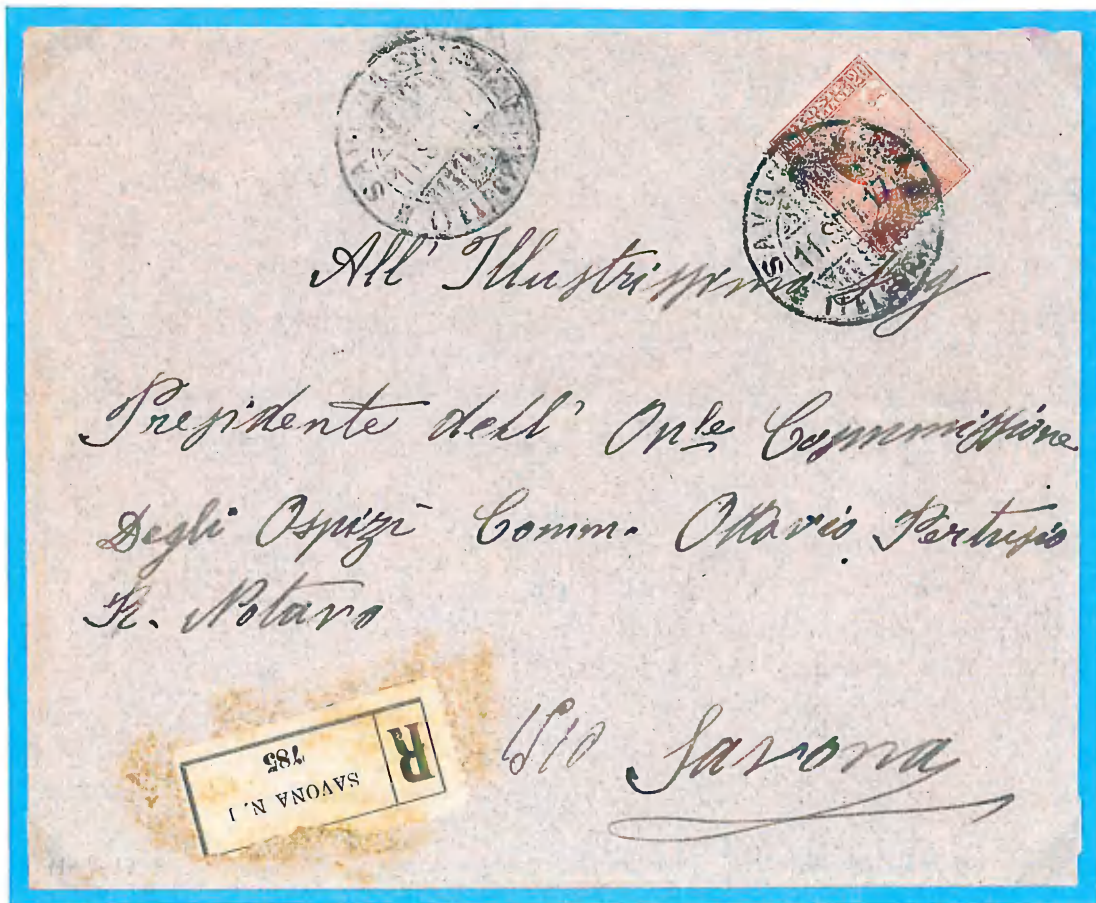 All' Illustrissimo Sig
Presidente dell' On.le Commissione
Degli Ospizi Comm. Ottavio Pertusio
R. Notaro
Savona
R
SAVONA N. 1
785